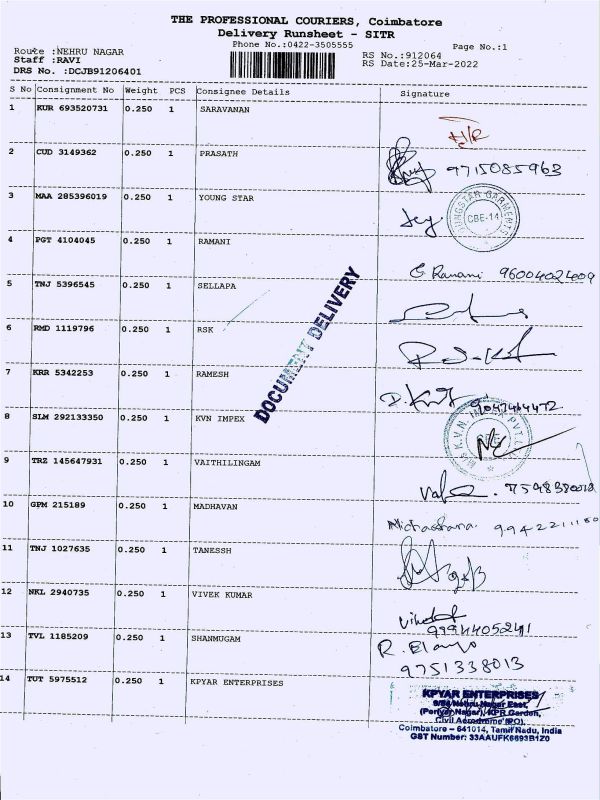 THE PROFESSIONAL COURIERS, Coimbatore
Delivery Runsheet - SITR
Phone No.:0422-3505555
Page No.:1
Route :NEHRU NAGAR
RS No.:912064
Staff :RAVI
RS Date:25-Mar-2022
DRS No. :DCJB91206401
S No Consignment No Weight PCS Consignee Details Signature
1 KUR 693520731 0.250 1 SARAVANAN
2 CUD 3149362 0.250 1 PRASATH 9715085963
3 MAA 285396019 0.250 1 YOUNG STAR
CBE-14
4 PGT 4104045 0.250 1 RAMANI
G. Ramani 9600402409
5 TNJ 5396545 0.250 1 SELLAPA
6 RMD 1119796 0.250 1 RSK
DOCUMENT DELIVERY
7 KRR 5342253 0.250 1 RAMESH
8 SLM 292133350 0.250 1 KVN IMPEX
9 TRZ 145647931 0.250 1 VAITHILINGAM
10 GPM 215189 0.250 1 MADHAVAN
11 TNJ 1027635 0.250 1 TANESSH
12 NKL 2940735 0.250 1 VIVEK KUMAR
13 TVL 1185209 0.250 1 SHANMUGAM
9751338013
14 TUT 5975512 0.250 1 KPYAR ENTERPRISES
KPYAR ENTERPRISES
Nehru Nagar East,
(Periyar Nagar), KPR Garden,
Civil Aerodrome (PO),
Coimbatore – 641014, Tamil Nadu, India
GST Number: 33AAUFK6693B1Z0